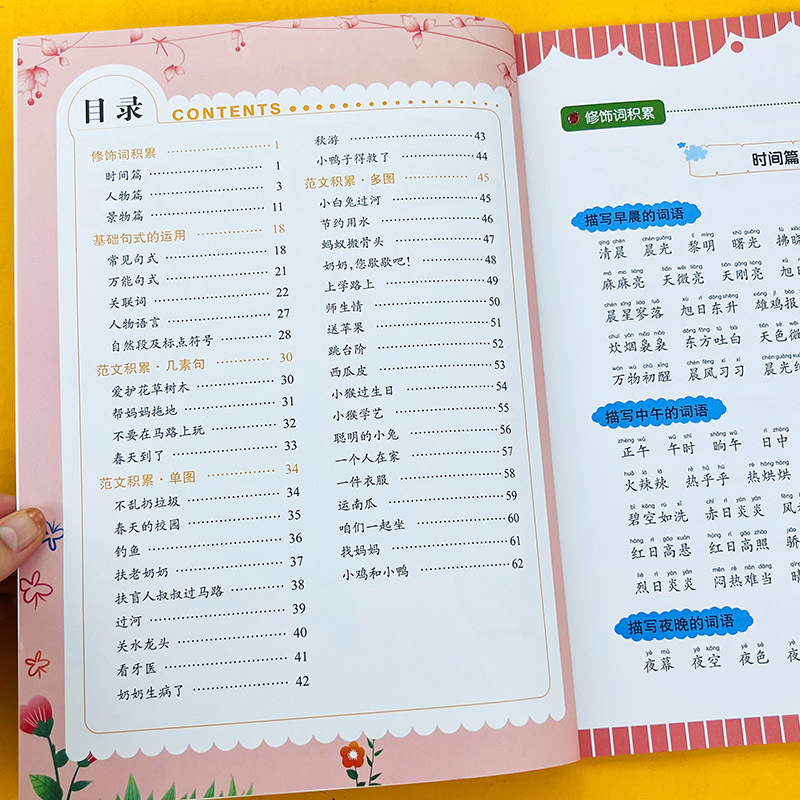 目录 CONTENTS
修饰词积累 1
时间篇 1
人物篇 3
景物篇 11
基础句式的运用 18
常见句式 18
万能句式 21
关联词 22
人物语言 27
自然段及标点符号 28
范文积累·几素句 30
爱护花草树木 30
帮妈妈拖地 31
不要在马路上玩 32
春天到了 33
范文积累·单图 34
不乱扔垃圾 34
春天的校园 35
钓鱼 36
扶老奶奶 37
扶盲人叔叔过马路 38
过河 39
关水龙头 40
看牙医 41
奶奶生病了 42
秋游 43
小鸭子得救了 44
范文积累·多图 45
小白兔过河 45
节约用水 46
蚂蚁搬骨头 47
奶奶,您歇歇吧! 48
上学路上 49
师生情 50
送苹果 51
跳台阶 52
西瓜皮 53
小猴过生日 54
小猴学艺 55
聪明的小兔 56
一个人在家 57
一件衣服 58
运南瓜 59
咱们一起坐 60
找妈妈 61
小鸡和小鸭 62
修饰词积累
时间篇
描写早晨的词语
qīng chén chén guāng lí míng shǔ guāng
清晨 晨光 黎明 曙光 拂晓
má má liàng tiān wēi liàng tiān gāng liàng
麻麻亮 天微亮 天刚亮 旭日
chén xīng liáo luò xù rì dōng shēng
晨星寥落 旭日东升 雄鸡报
chuī yān niǎo niǎo dōng fāng tǔ bái
炊烟袅袅 东方吐白 天色微
wàn wù chū xǐng chén fēng xí xí
万物初醒 晨风习习 晨光
描写中午的词语
zhèng wǔ wǔ shí shǎng wǔ rì zhōng
正午 午时 晌午 日中
huǒ là là rè hū hū rè hōng hōng
火辣辣 热乎乎 热烘烘
bì kōng rú xǐ chì rì yán yán
碧空如洗 赤日炎炎 风
hóng rì gāo xuán hóng rì gāo zhào
红日高悬 红日高照 骄
liè rì yán yán mēn rè nán dāng
烈日炎炎 闷热难当 晴
描写夜晚的词语
yè mù yè kōng yè sè
夜幕 夜空 夜色 夜